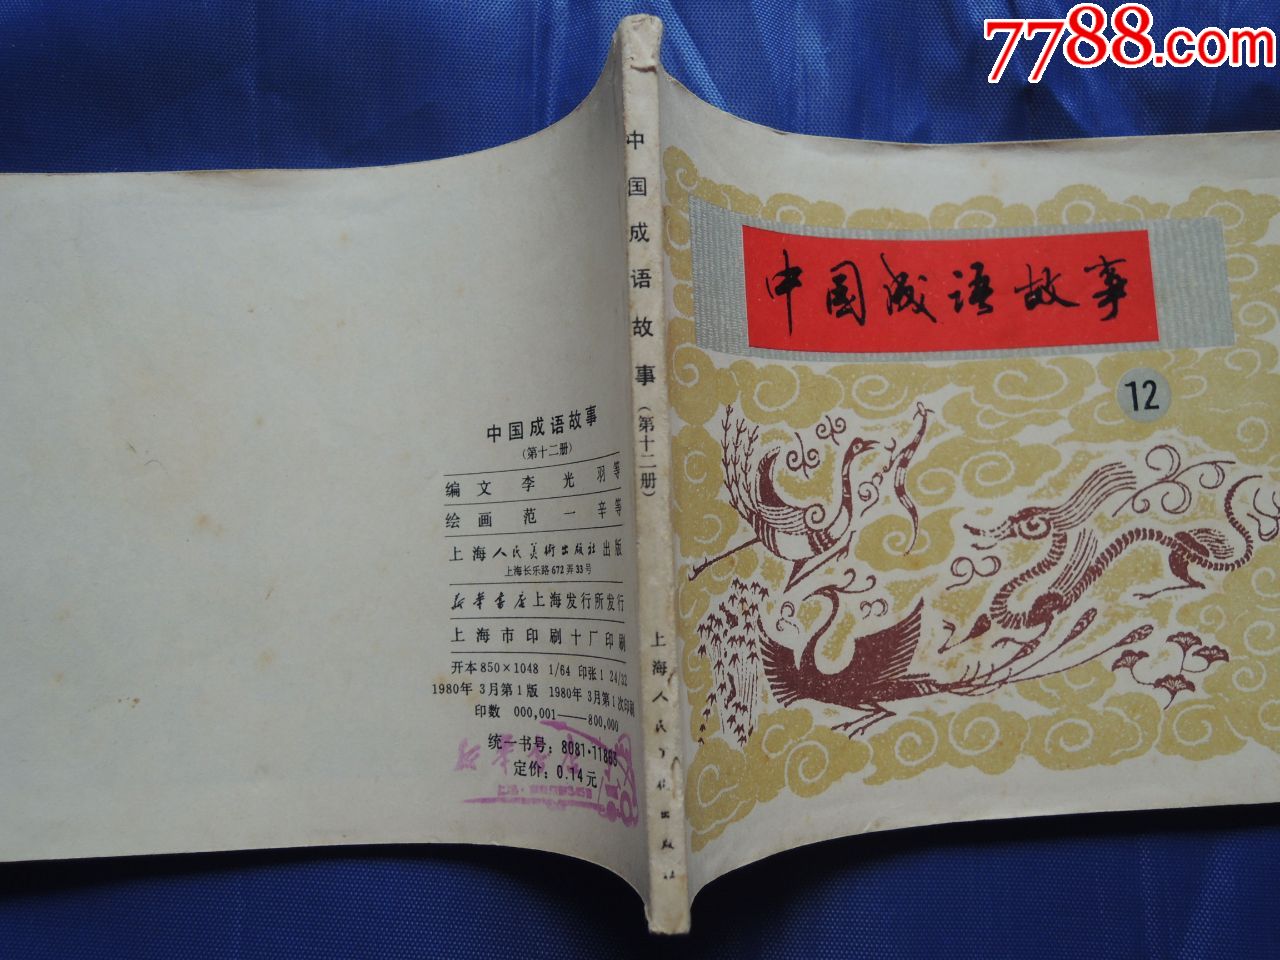 7788.com
中国成语故事
12
中国成语故事(第十二册)
上海人民
出版社
中国成语故事
(第十二册)
编文 李光羽等
绘画 范一辛等
上海人民美术出版社出版
上海长乐路672弄33号
新华书店上海发行所发行
上海市印刷十厂印刷
开本850×1048 1/64 印张1 24/32
1980年3月第1版 1980年3月第1次印刷
印数 000,001——800,000
统一书号: 8081·11863
定价: 0.14元
新华书店